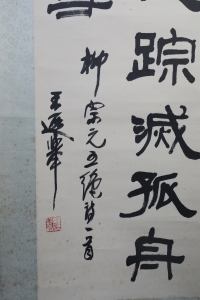 踪滅孤舟
柳宗元五絶詩一首
王遐舉